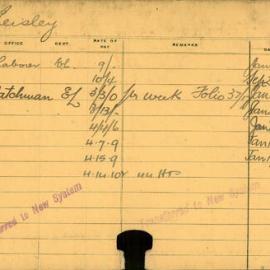 OFFICE DEPT. RATE OF PAY REMARKS
Laborer El. 9/- Jan
10/4 Sep
atchman EL 3/3/0 per week Folio 37/ Jan
3/13/- Jan
4/1/6 Jan
4-7-9 Jan
4-15-9 Jan
4-14-10
erred to New System
Transferred to New System